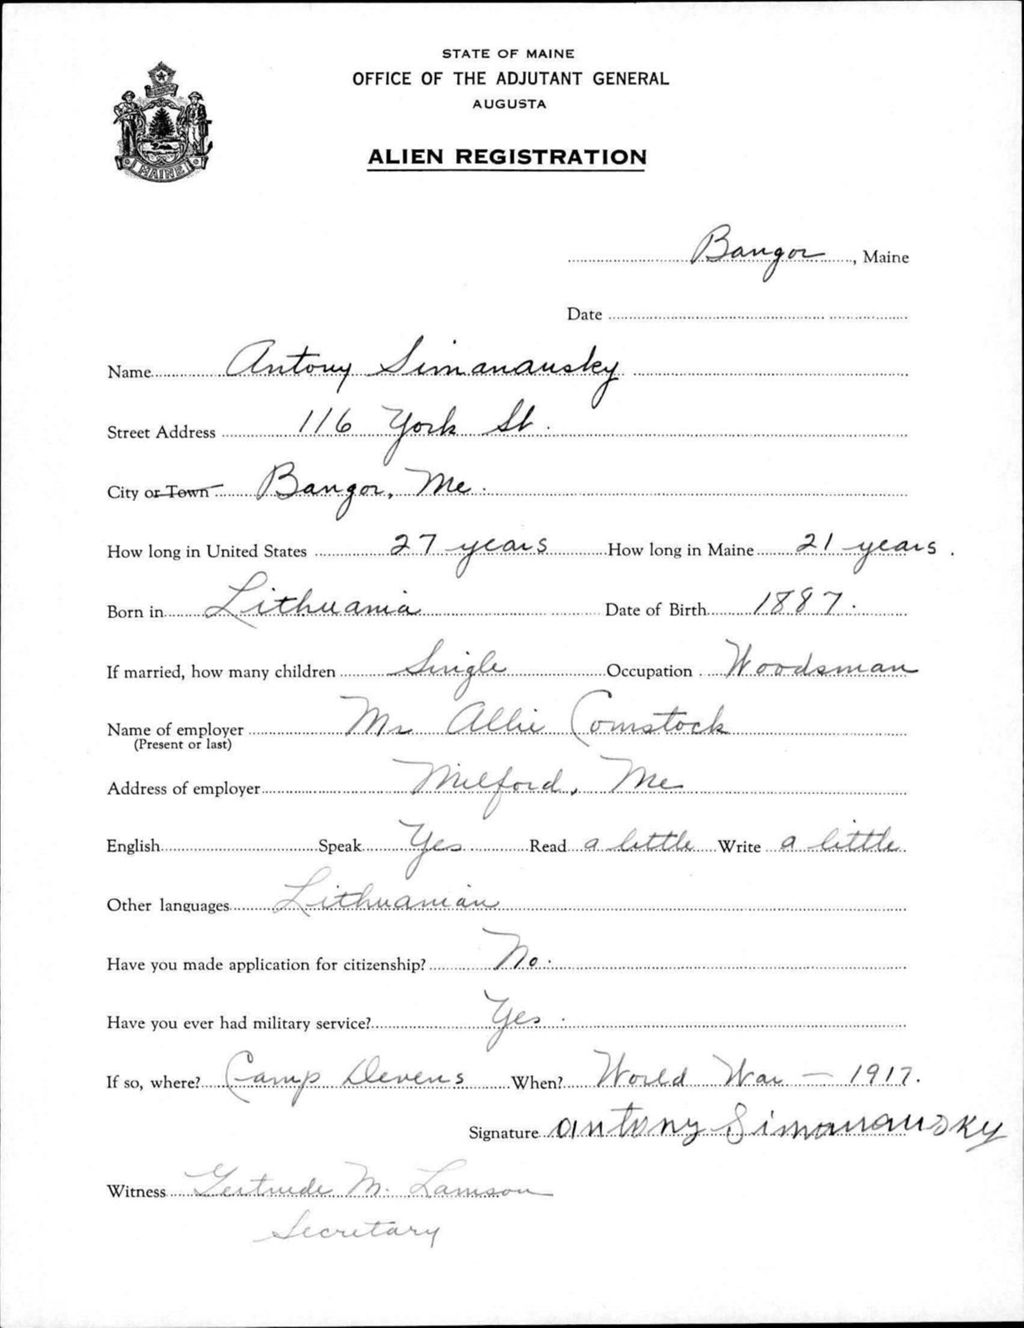 STATE OF MAINE
OFFICE OF THE ADJUTANT GENERAL
AUGUSTA
ALIEN REGISTRATION
MAINE
Bangor, Maine
Date
Name Antony Simanausky
Street Address 116 York St.
City or Town Bangor, Me.
How long in United States 27 years How long in Maine 21 years.
Born in Lithuania Date of Birth 1887.
If married, how many children Single Occupation Woodsman
Name of employer Mr Allie Comstock
(Present or last)
Address of employer Milford, Me
English Speak Yes Read a little Write a little
Other languages Lithuanian
Have you made application for citizenship? No.
Have you ever had military service? Yes.
If so, where? Camp Devens When? World War - 1917.
Signature Antony Simanausky
Witness Gertrude M. Lamson
Secretary